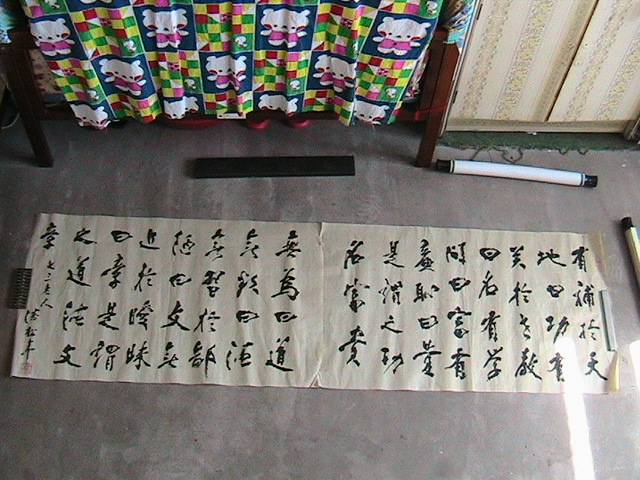 有補於天
地曰功有
关於世教
曰名有学
问曰富有
廉恥曰貴
是謂之功
名富貴
無為曰道
無欲曰德
無習於鄙
陋曰文無
近於曖昧
曰章是謂
之道德文
章
七三老人